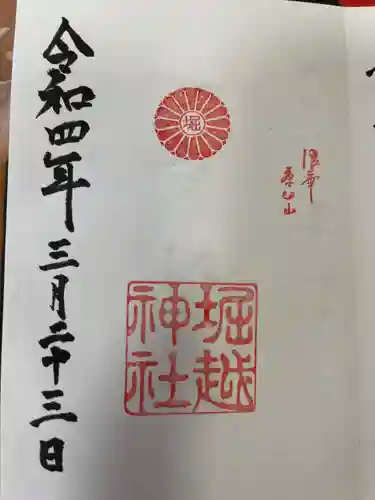 浪華
茶臼山
堀
堀越
神社
令和四年三月二十三日